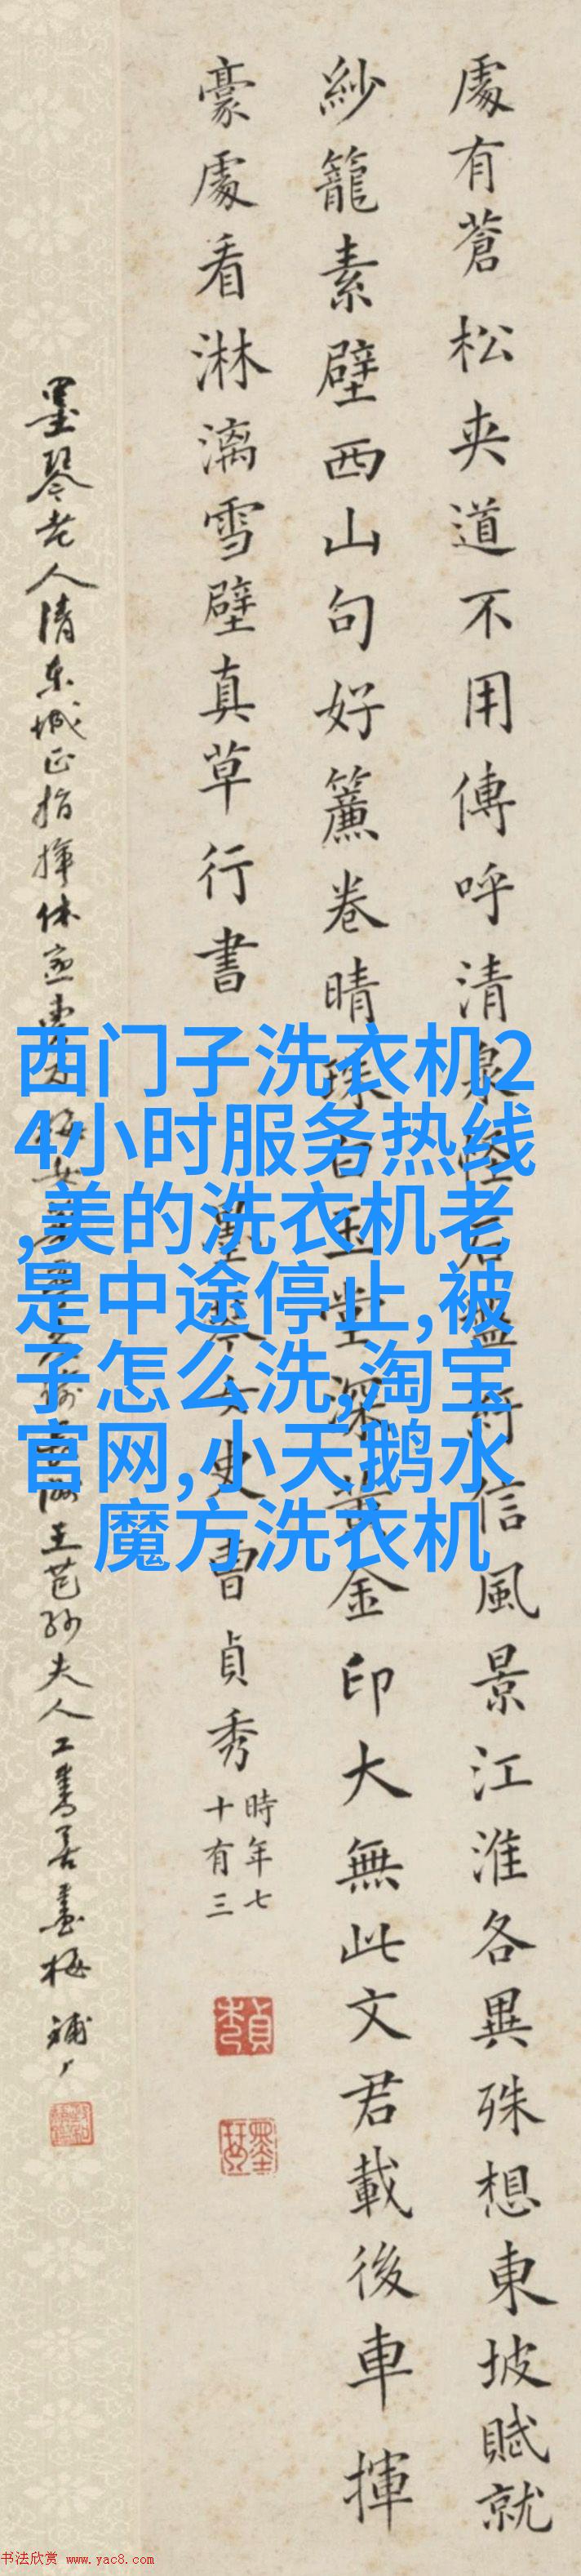 處有蒼松夾道不用傳呼清泉怪石盤行信風景江淮各異殊想東坡賦就
紗籠素壁西山句好簾卷晴珠白玉堂深黃金印大無此文君載後車揮
豪處看淋漓雪壁真草行書
墨琴女史曹貞秀
時年七
十有三
貞秀
墨琴
墨琴老人清東城正指揮休
王芑孫夫人工書善畫梅
西门子洗衣机2
4小时服务热线
,美的洗衣机老
是中途停止,被
子怎么洗,淘宝
官网,小天鹅水
魔方洗衣机
书法欣赏 www.yac8.com